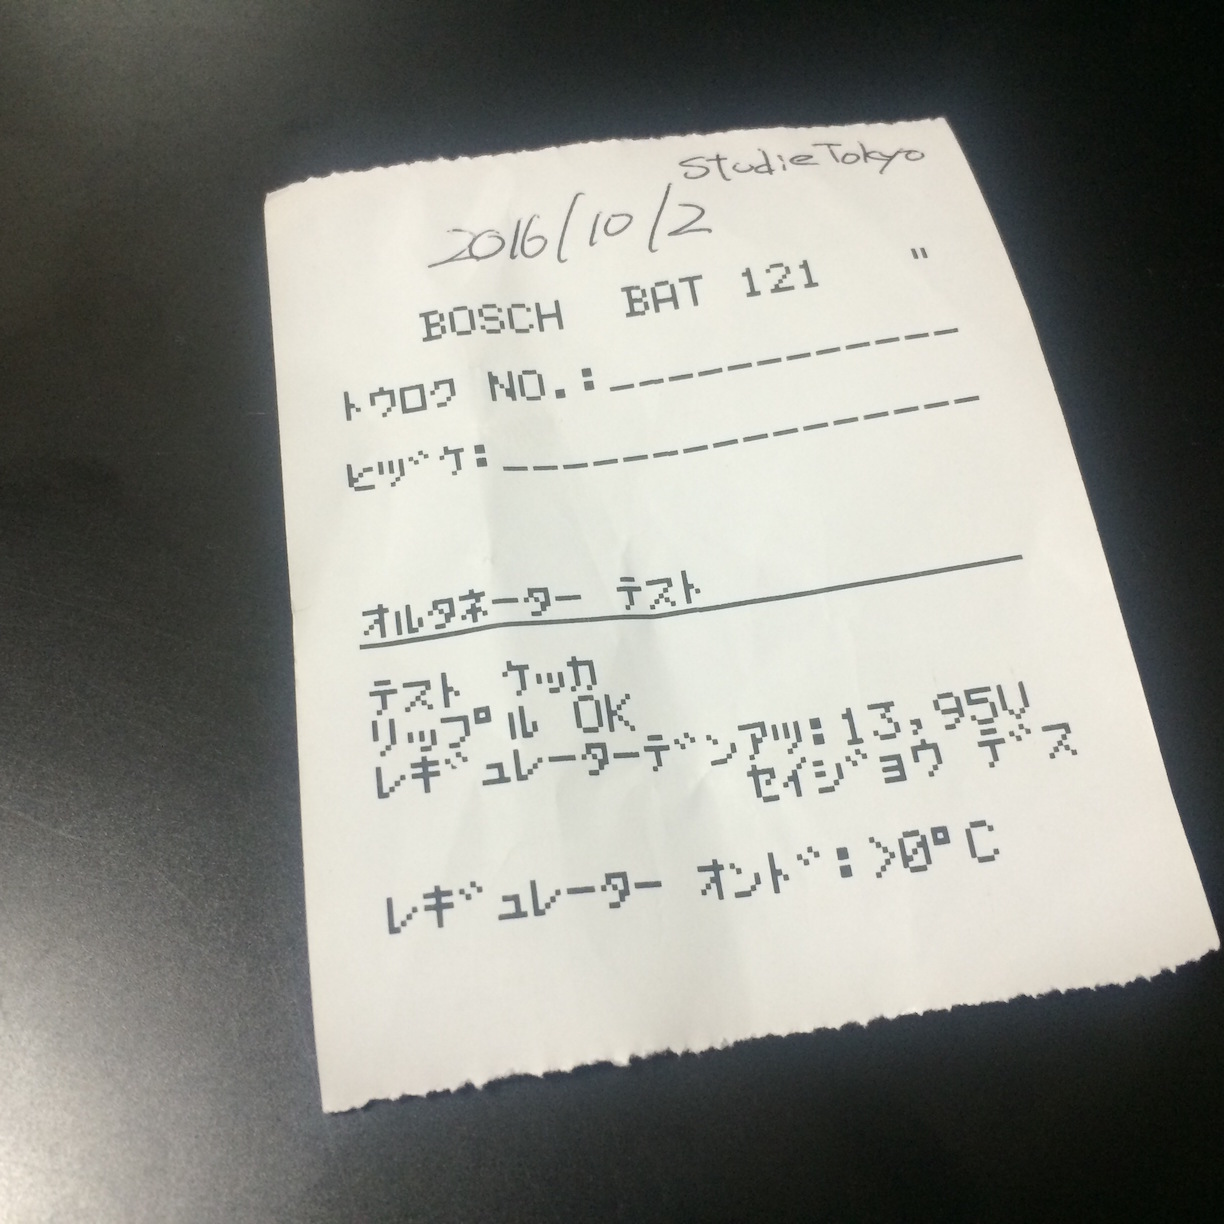 Studie Tokyo
2016/10/2
BOSCH BAT 121 "
トウロク NO.:____________
ヒヅケ:________________
オルタネーター テスト
テスト ケッカ
リップル OK
レギュレーターデンアツ:13,95V
セイジョウ デス
レギュレーター オンド:>0°C